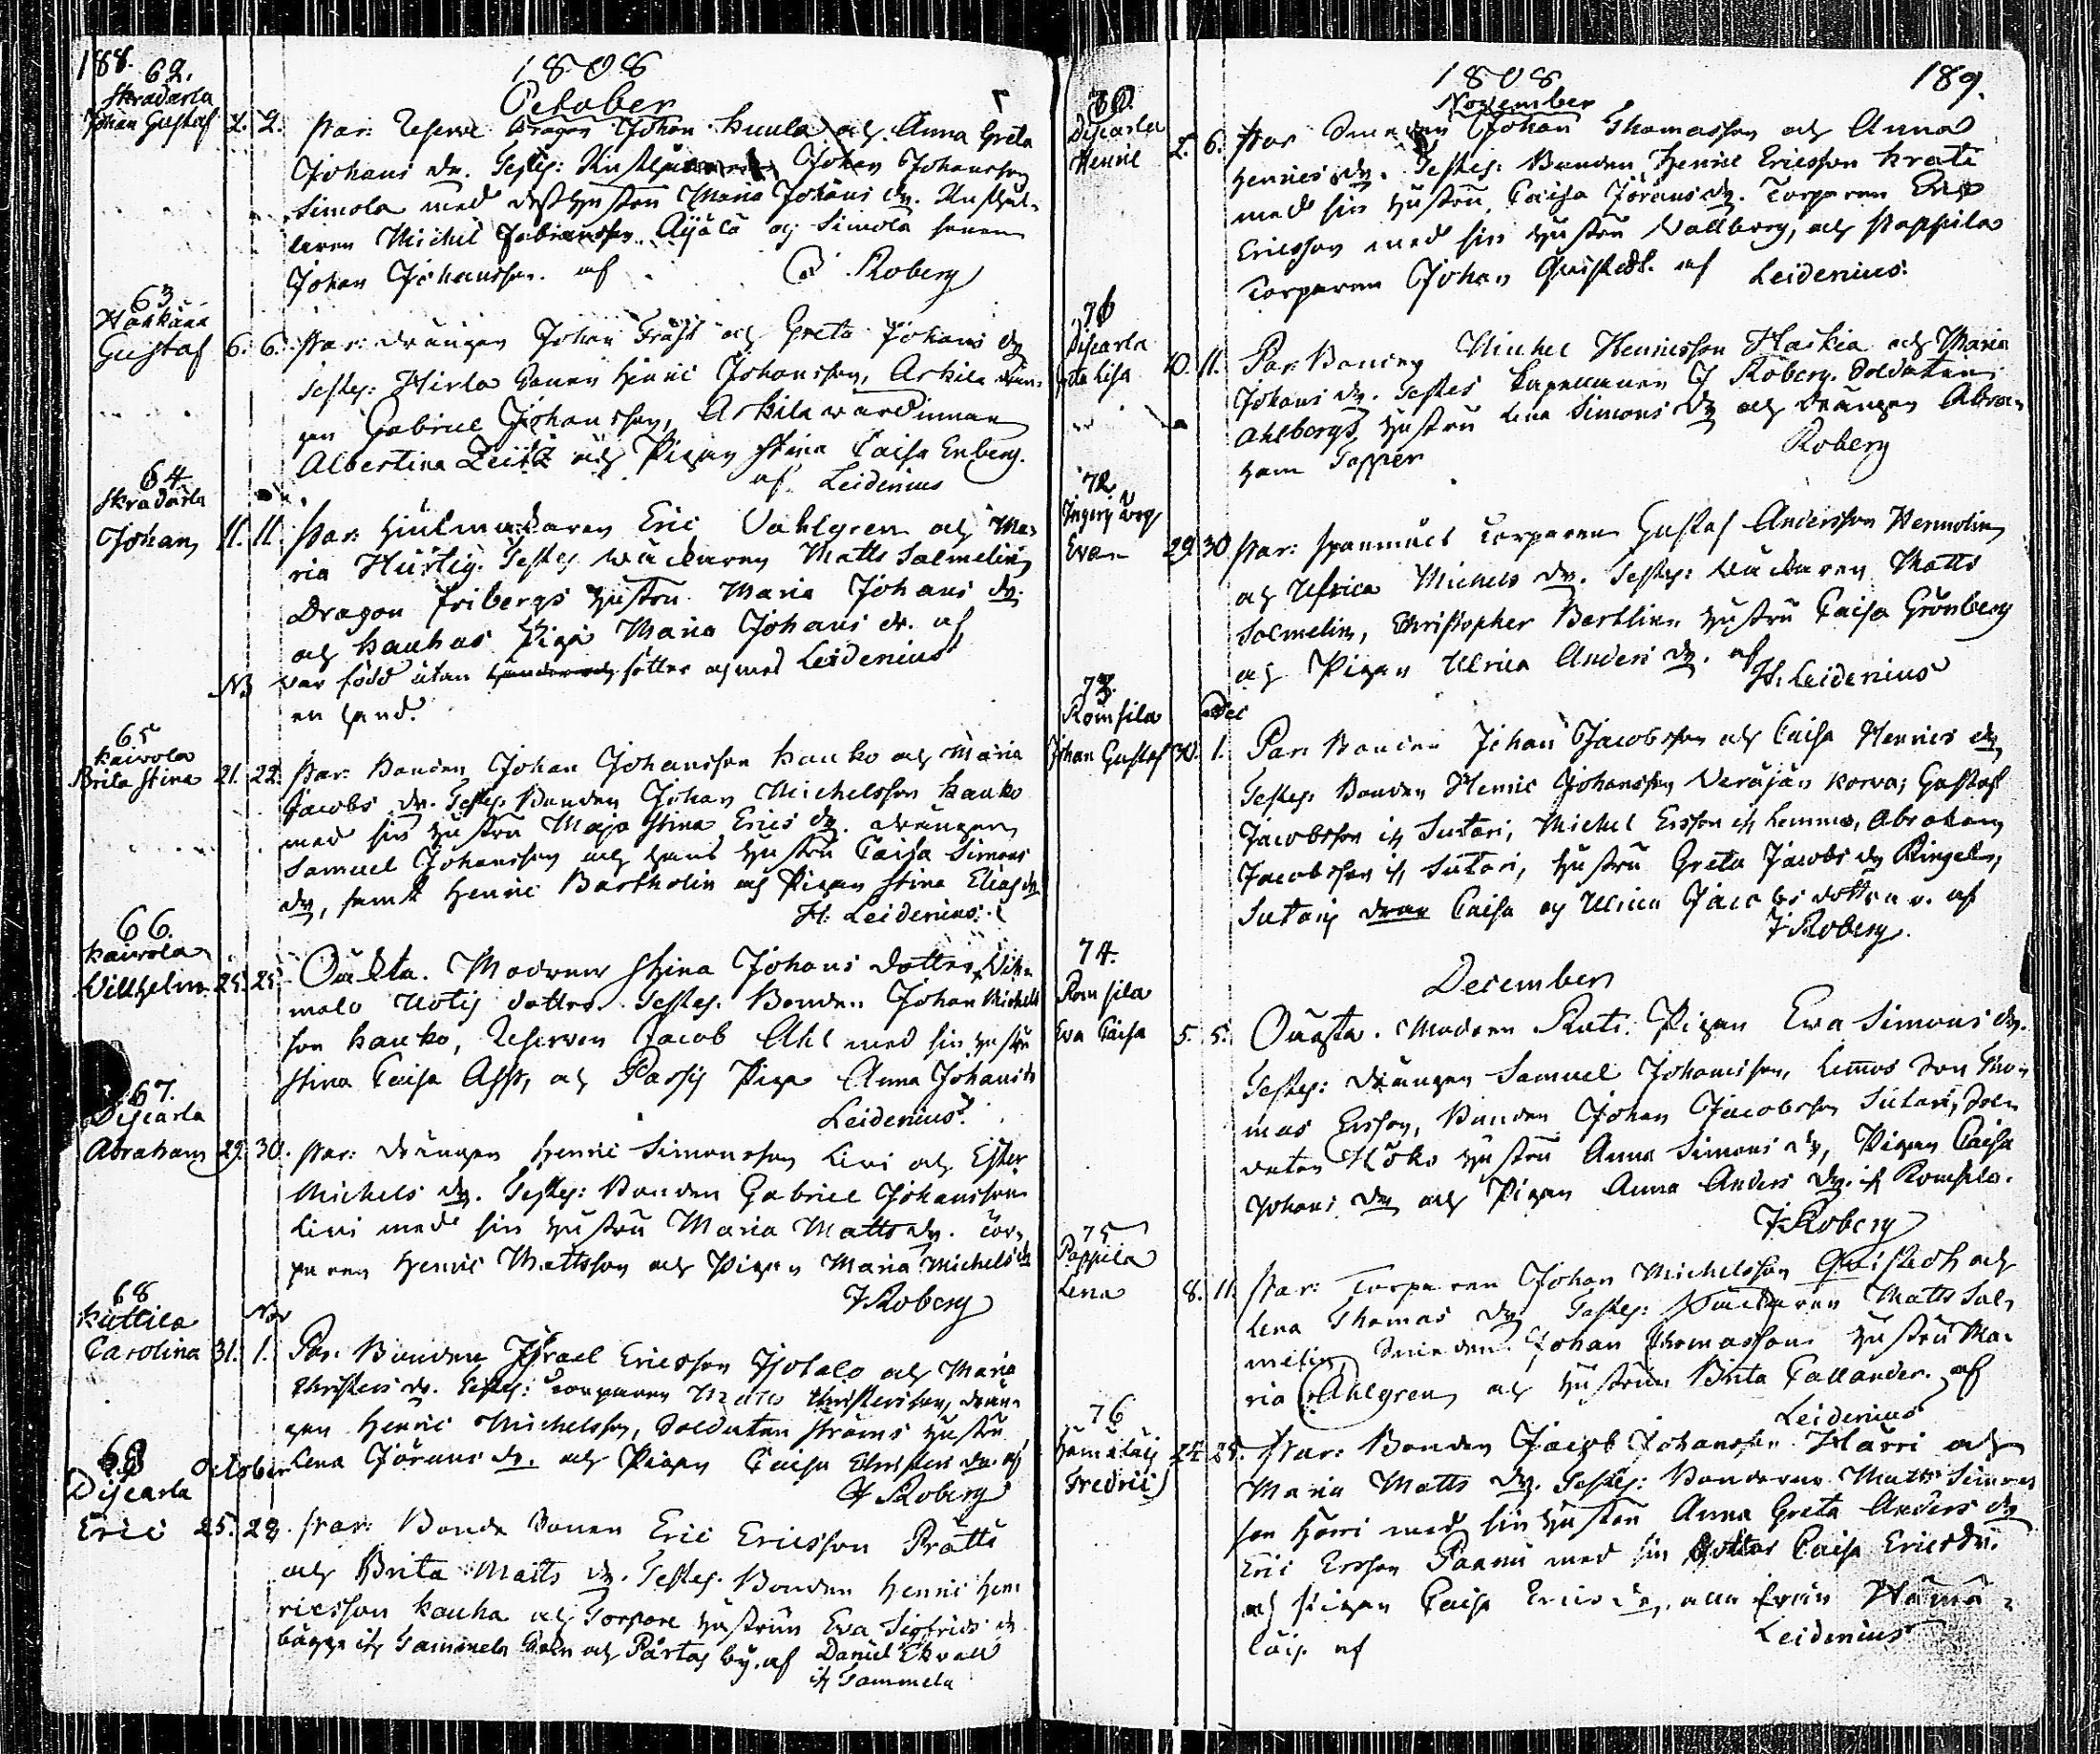 188.
1808
October
62.
Skradarla
Johan Gustaf 2. 2. Par: Reserve Dragon Johan Kuula och Anna Greta
Johans dr. Testes: Johan Johansson
Simola med dess hustru Maria Johans dr.
laren Michel Äijälä och Simola sonen
Johan Johansson. af Roberg
63.
Gustaf 6. 6. Par: drängen Johan Fräst och Greta Johans dr
Testes: Hirla sonen Henric Johansson, Arkila drän-
gen Gabriel Johansson, Arkila wärdinnan
Albertina Zeitz och Pigan Stina Caisa Enberg.
af Leidenius
64.
Skradarla
Johan 11. 11. Par: Hjulmakaren Eric Vahlgren och Ma-
ria Hurtig. Testes wäckaren Matts Salmelin
Dragon Fribergs hustru Maria Johans dr.
och Kauhas Piga Maria Johans dr. af
NB var född utan fötter och med Leidenius
en hand.
65
Kaivola
Brita Stina 21. 22. Par: Bonden Johan Johansson Kauko och Maria
Jacobs dr. Testes Bonden Johan Michelsson Kauko
med sin hustru Maja Stina Erics dr. drängen
Samuel Johansson och hans hustru Caisa Simons
dr, samt Henric Bartholin och Pigan Stina Elias dr
H: Leidenius.
66.
Kaivola
Willhelm 25. 25. Oäkta. Modren Stina Johans dotter
dotter. Testes. Bonden Johan Michels
son Kauko, Reserven Jacob Ahl med sin hustru
Stina Caisa Asp, och Piga Anna Johans dr
Leidenius
67.
Dijcarla
Abraham 29. 30. Par: drängen Henric Simonsson Livi och Ester
Michels dr. Testes: Bonden Gabriel Johansson
Livi med sin hustru Maria Matts dr. Tor-
paren Henric Mattsson och Pigan Maria Michels dr
J Roberg
68
Nov
Carolina 31. 1. Par. Bonden Israel Ericsson Isotalo och Maria
Christers dr. Testes: Torparen Matts Christersson, drän-
gen Henric Michelsson, Soldaten Ströms hustru
Lena Jörans dr. och Pigan Caisa Christers dr. af
J Roberg
69
October
Dijcarla
Eric 25. 28. Par: Bonde sonen Eric Ericsson Prätti
och Brita Matts dr. Testes. Bonden Henric Hen-
ricsson Kauha och Torpare hustrun Eva Sigfrids dr
bägge ifr Tammela Sokn och Pärtas by. af Daniel Ekvall
ifr Tammela
1808
189.
November
70.
Dijcarla
Henric 5. 6. Par Smeden Johan Thomasson och Anna
Henrics dr. Testes: Bonden Henric Ericsson Krati
med sin hustru Caisa Jörans dr. Torparen Eric
Ericsson med sin hustru Wallberg, och Pappila
Torparen Johan Qvistedt. af Leidenius.
71
Dijcarla
Greta Lisa 10. 11. Par Bonden Michel Henricsson Haskia och Maria
Johans dr. Testes Capellanen J Roberg. Soldaten
Ahlbergs hustru Lena Simons dr och drängen Abra-
ham Topper Roberg
72.
Eva 29. 30. Par: Torparen Gustaf Andersson Hermolin
och Ulrica Michels dr. Testes: Wäckaren Matts
Salmelin, Christopher Berthlins hustru Caisa Grönberg
och Pigan Ulrica Anders dr. af
H. Leidenius
73.
Romsila
Dec
Johan Gustaf 30. 1. Par: Bonden Johan Jacobsson och Caisa Henrics dr
Testes: Bonden Henric Johansson Veräjän Korva; Gustaf
Jacobsson ifr Sutari, Michel Ersson ifr Lemmo, Abraham
Jacobsson ifr Sutari, hustru Greta Jacobs dr Ringel,
Sutaris Caisa och Ulrica Jacobs döttrar. af
J Roberg.
December
74.
Romsila
Eva Caisa 5. 5. Oäkta. Modren Rote Pigan Eva Simons dr.
Testes: drängen Samuel Johansson, Lemmos son Tho-
mas Ersson, Bonden Johan Jacobsson Sutari, Sol-
daten Höks hustru Anna Simons dr, Pigan Caisa
Johans dr och Pigan Anna Anders dr. ifr Romsila.
J Roberg
75
Pappila
Lena 8. 11. Par: Torparen Johan Michelsson Qvistedt och
Lena Thomas dr Testes: Wäckaren Matts Sal-
melin, Smeden Johan Thomasson hustru Ma-
ria Ahlgren, och hustrun Brita Callander. af
Leidenius
76
Hämäläis
Fredric 24. 25. Par: Bonden Jacob Johansson Härri och
Maria Matts dr. Testes: Bonderne Matts Simons
son Härri med sin hustru Anna Greta Anders dr
Eric Ersson Paanu med sin dotter Caisa Erics dr.
och pigan Caisa Erics dr, alla från Hämä-
läis. af Leidenius